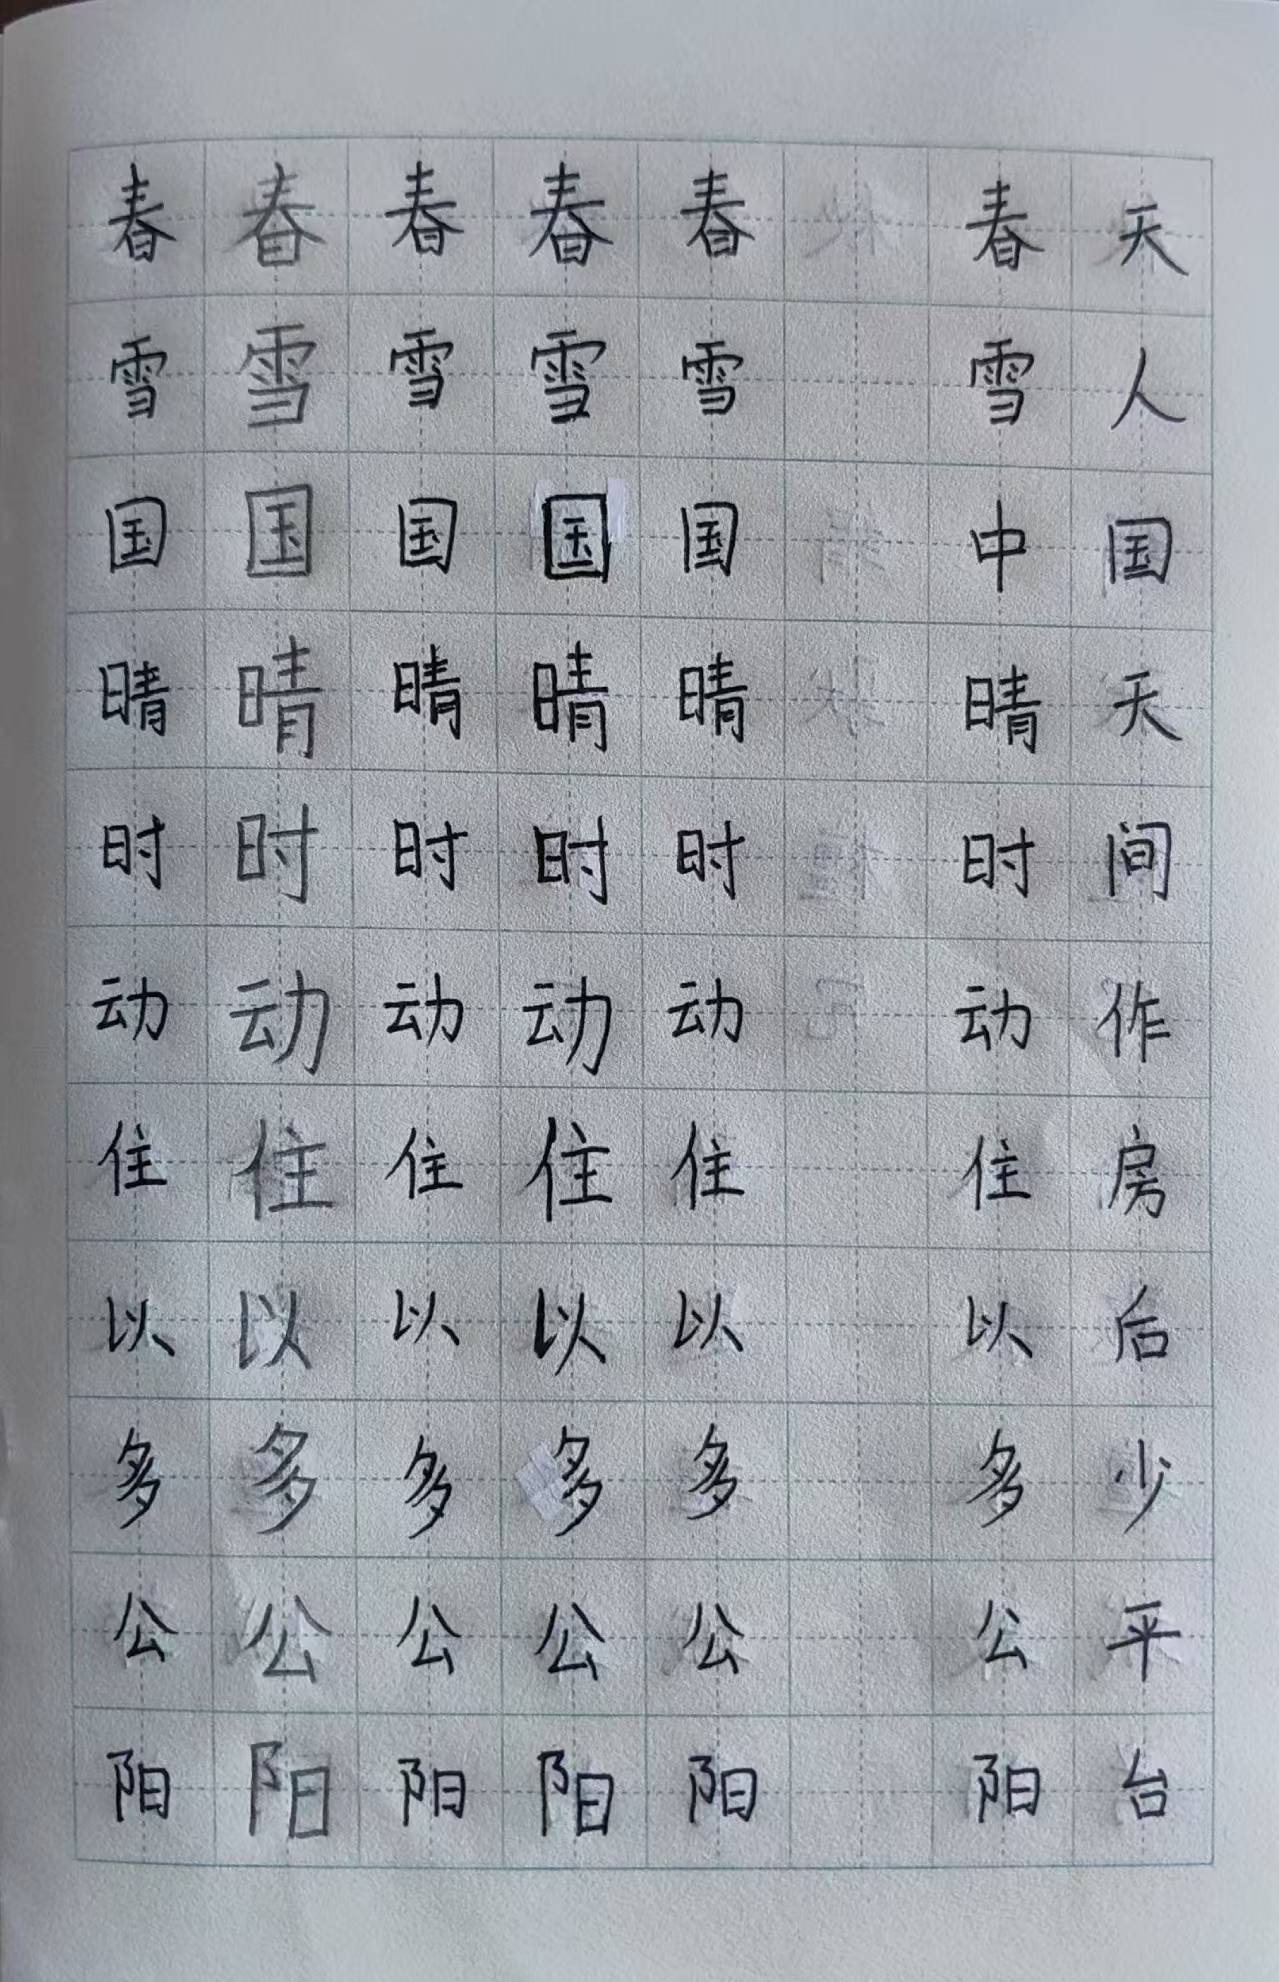 春春春春春 春天
雪雪雪雪雪 雪人
国国国国国 中国
晴晴晴晴晴 晴天
时时时时时 时间
动动动动动 动作
住住住住住 住房
以以以以以 以后
多多多多多 多少
公公公公公 公平
阳阳阳阳阳 阳台